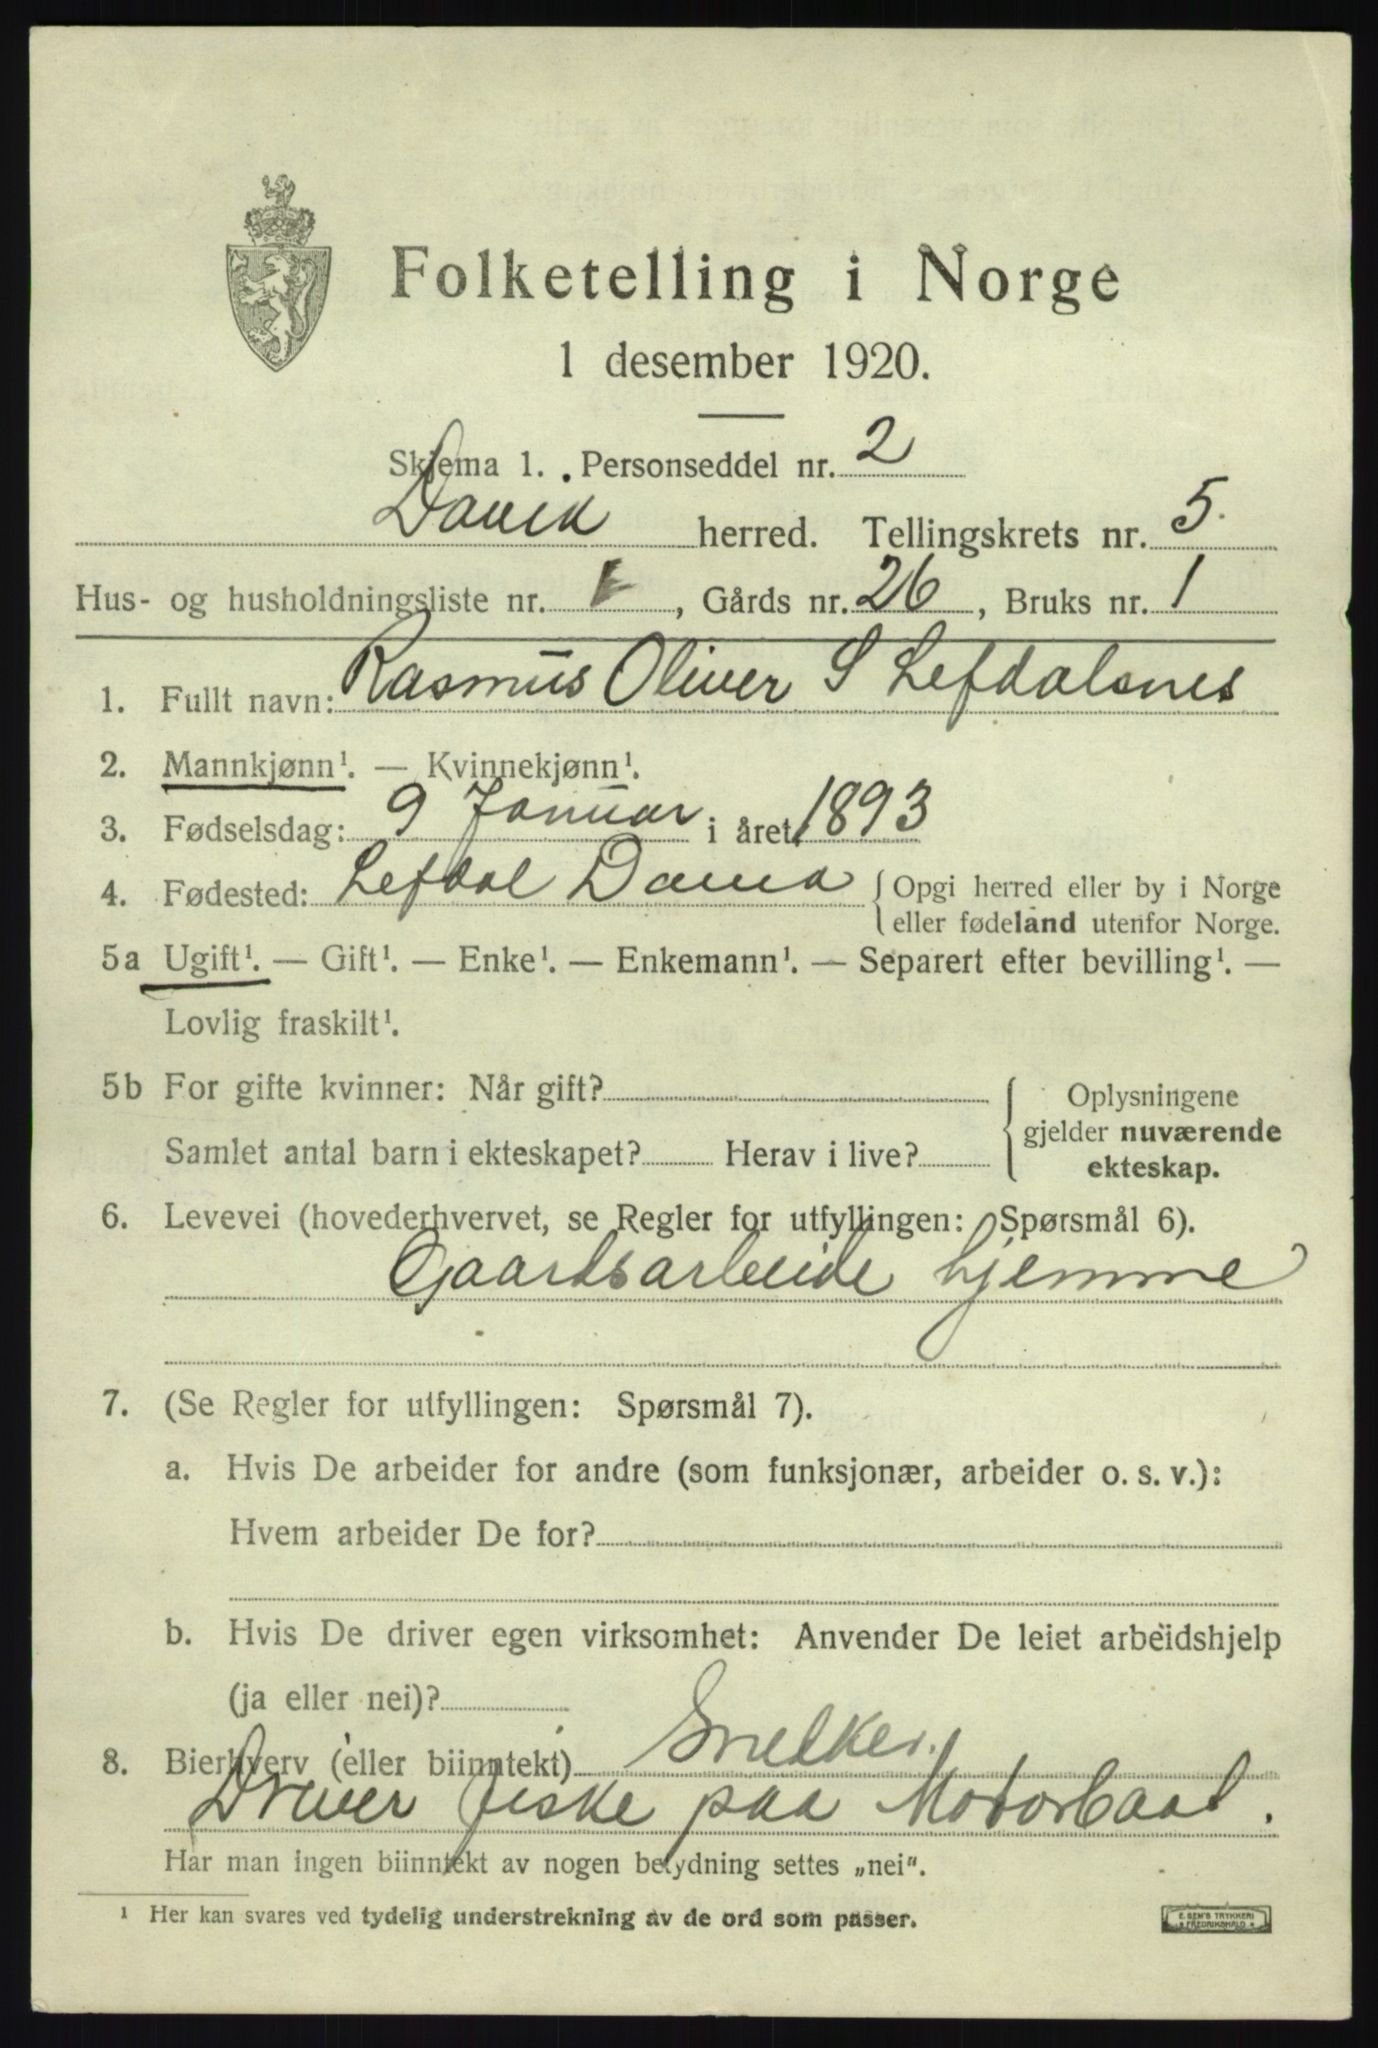 Folketelling i Norge
1 desember 1920.
Skjema 1. Personseddel nr. 2
Davik herred. Tellingskrets nr. 5.
Hus- og husholdningsliste nr. 1, Gårds nr. 26, Bruks nr. 1
1. Fullt navn: Rasmus Oliver S Lefdalsnes
2. Mannkjønn¹. — Kvinnekjønn¹.
3. Fødselsdag: 9 Januar i året 1893
4. Fødested: Lefdal Davik { Opgi herred eller by i Norge
eller fødeland utenfor Norge.
5a Ugift¹. — Gift¹. — Enke¹. — Enkemann¹. — Separert efter bevilling¹. —
Lovlig fraskilt¹.
5b For gifte kvinner: Når gift? { Oplysningene
gjelder nuværende
Samlet antal barn i ekteskapet? Herav i live?
ekteskap.
6. Levevei (hovederhvervet, se Regler for utfyllingen: Spørsmål 6).
Gaardsarbeide hjemme
7. (Se Regler for utfyllingen: Spørsmål 7).
a. Hvis De arbeider for andre (som funksjonær, arbeider o. s. v.):
Hvem arbeider De for?
b. Hvis De driver egen virksomhet: Anvender De leiet arbeidshjelp
(ja eller nei)?
8. Bierhverv (eller biinntekt) Snedker.
Driver fiske paa Motorbaat.
Har man ingen biinntekt av nogen betydning settes „nei“.
¹ Her kan svares ved tydelig understrekning av de ord som passer.
E. SEM'S TRYKKERI
FREDRIKSHALD